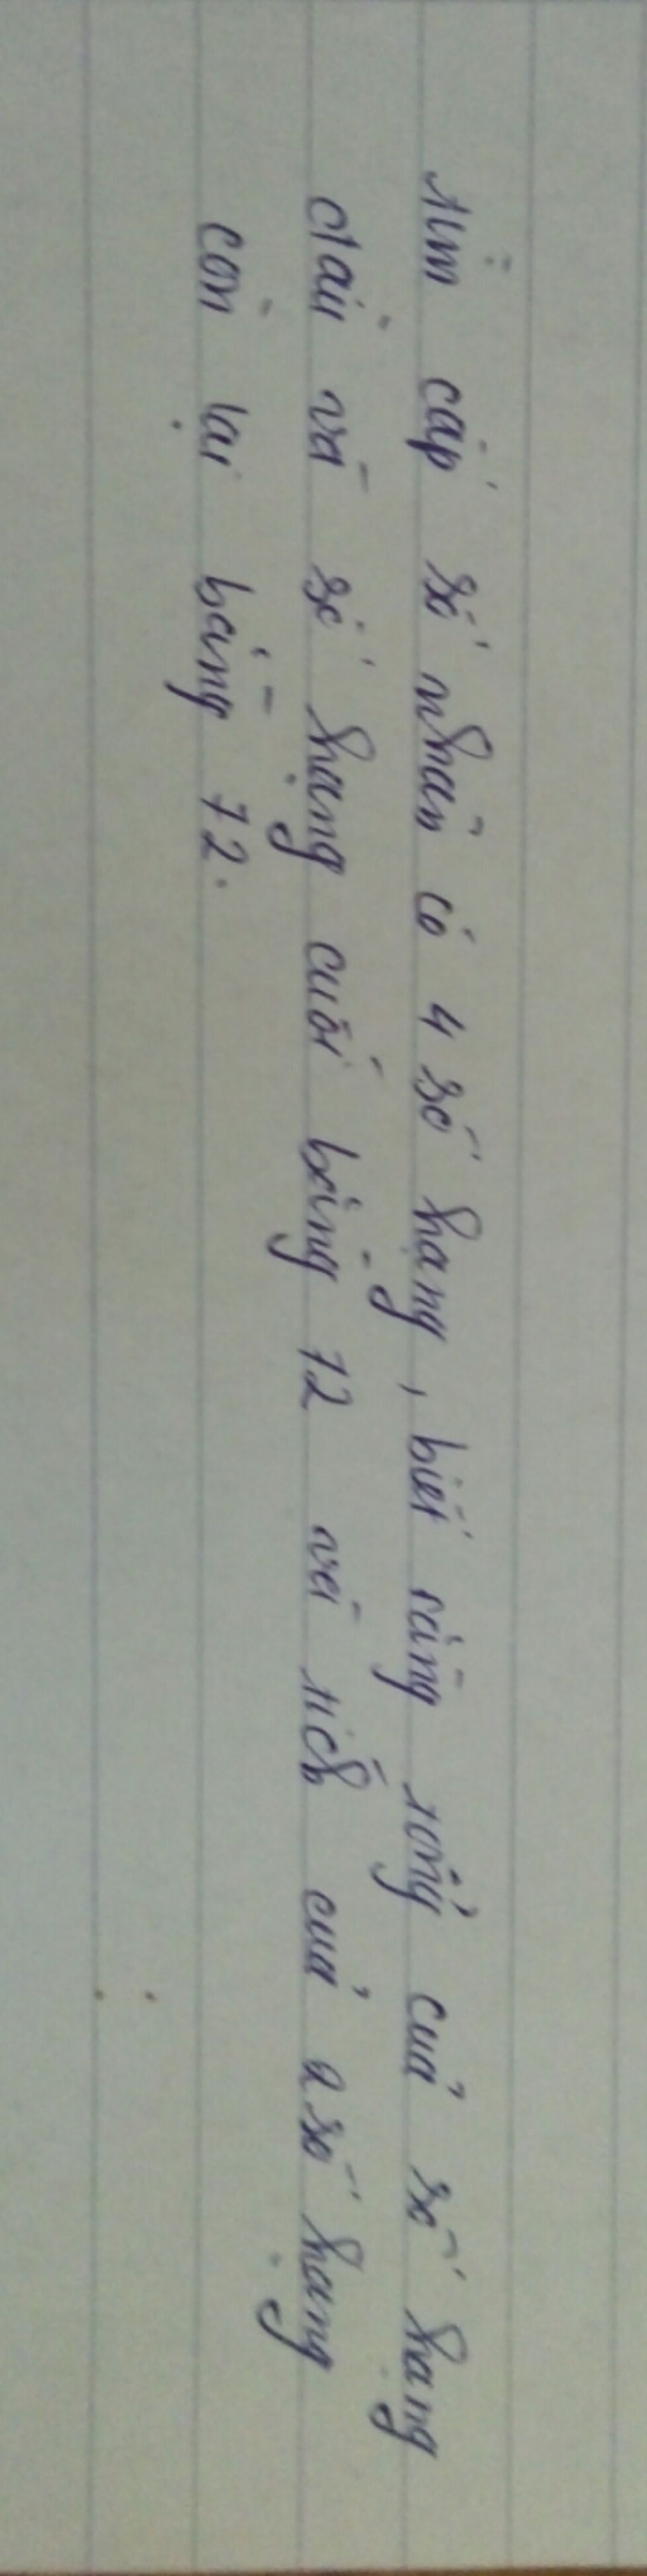 Tìm cấp số nhân có 4 số hạng, biết rằng tổng của số hạng
đầu và số hạng cuối bằng 72 và tích của 2 số hạng
còn lại bằng 72.